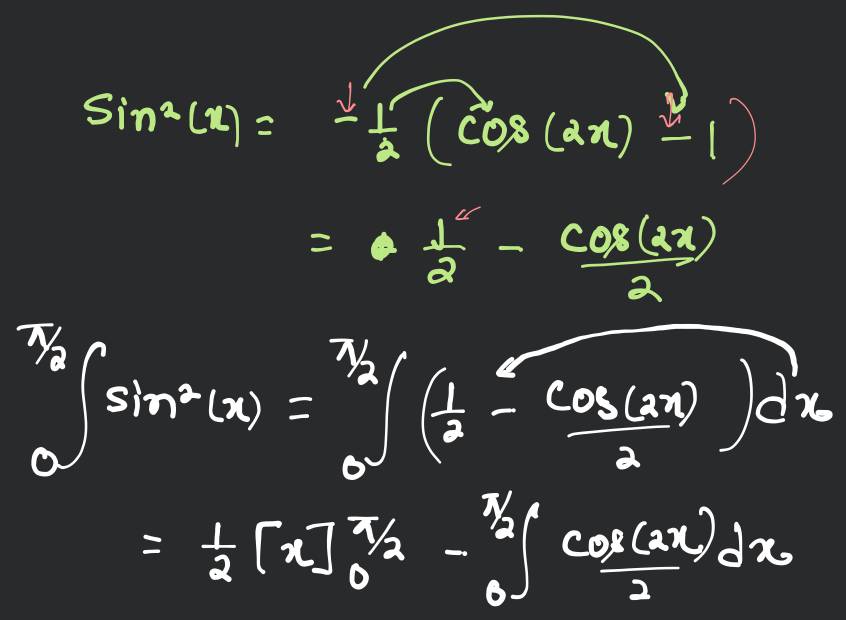 Sin²(x) = -1/2 (cos(2x) - 1)
= 1/2 - cos(2x)/2
π/2 ∫ 0 sin²(x) = π/2 ∫ 0 (1/2 - cos(2x)/2) dx
= 1/2 [x] π/2 0 - π/2 ∫ 0 cos(2x)/2 dx